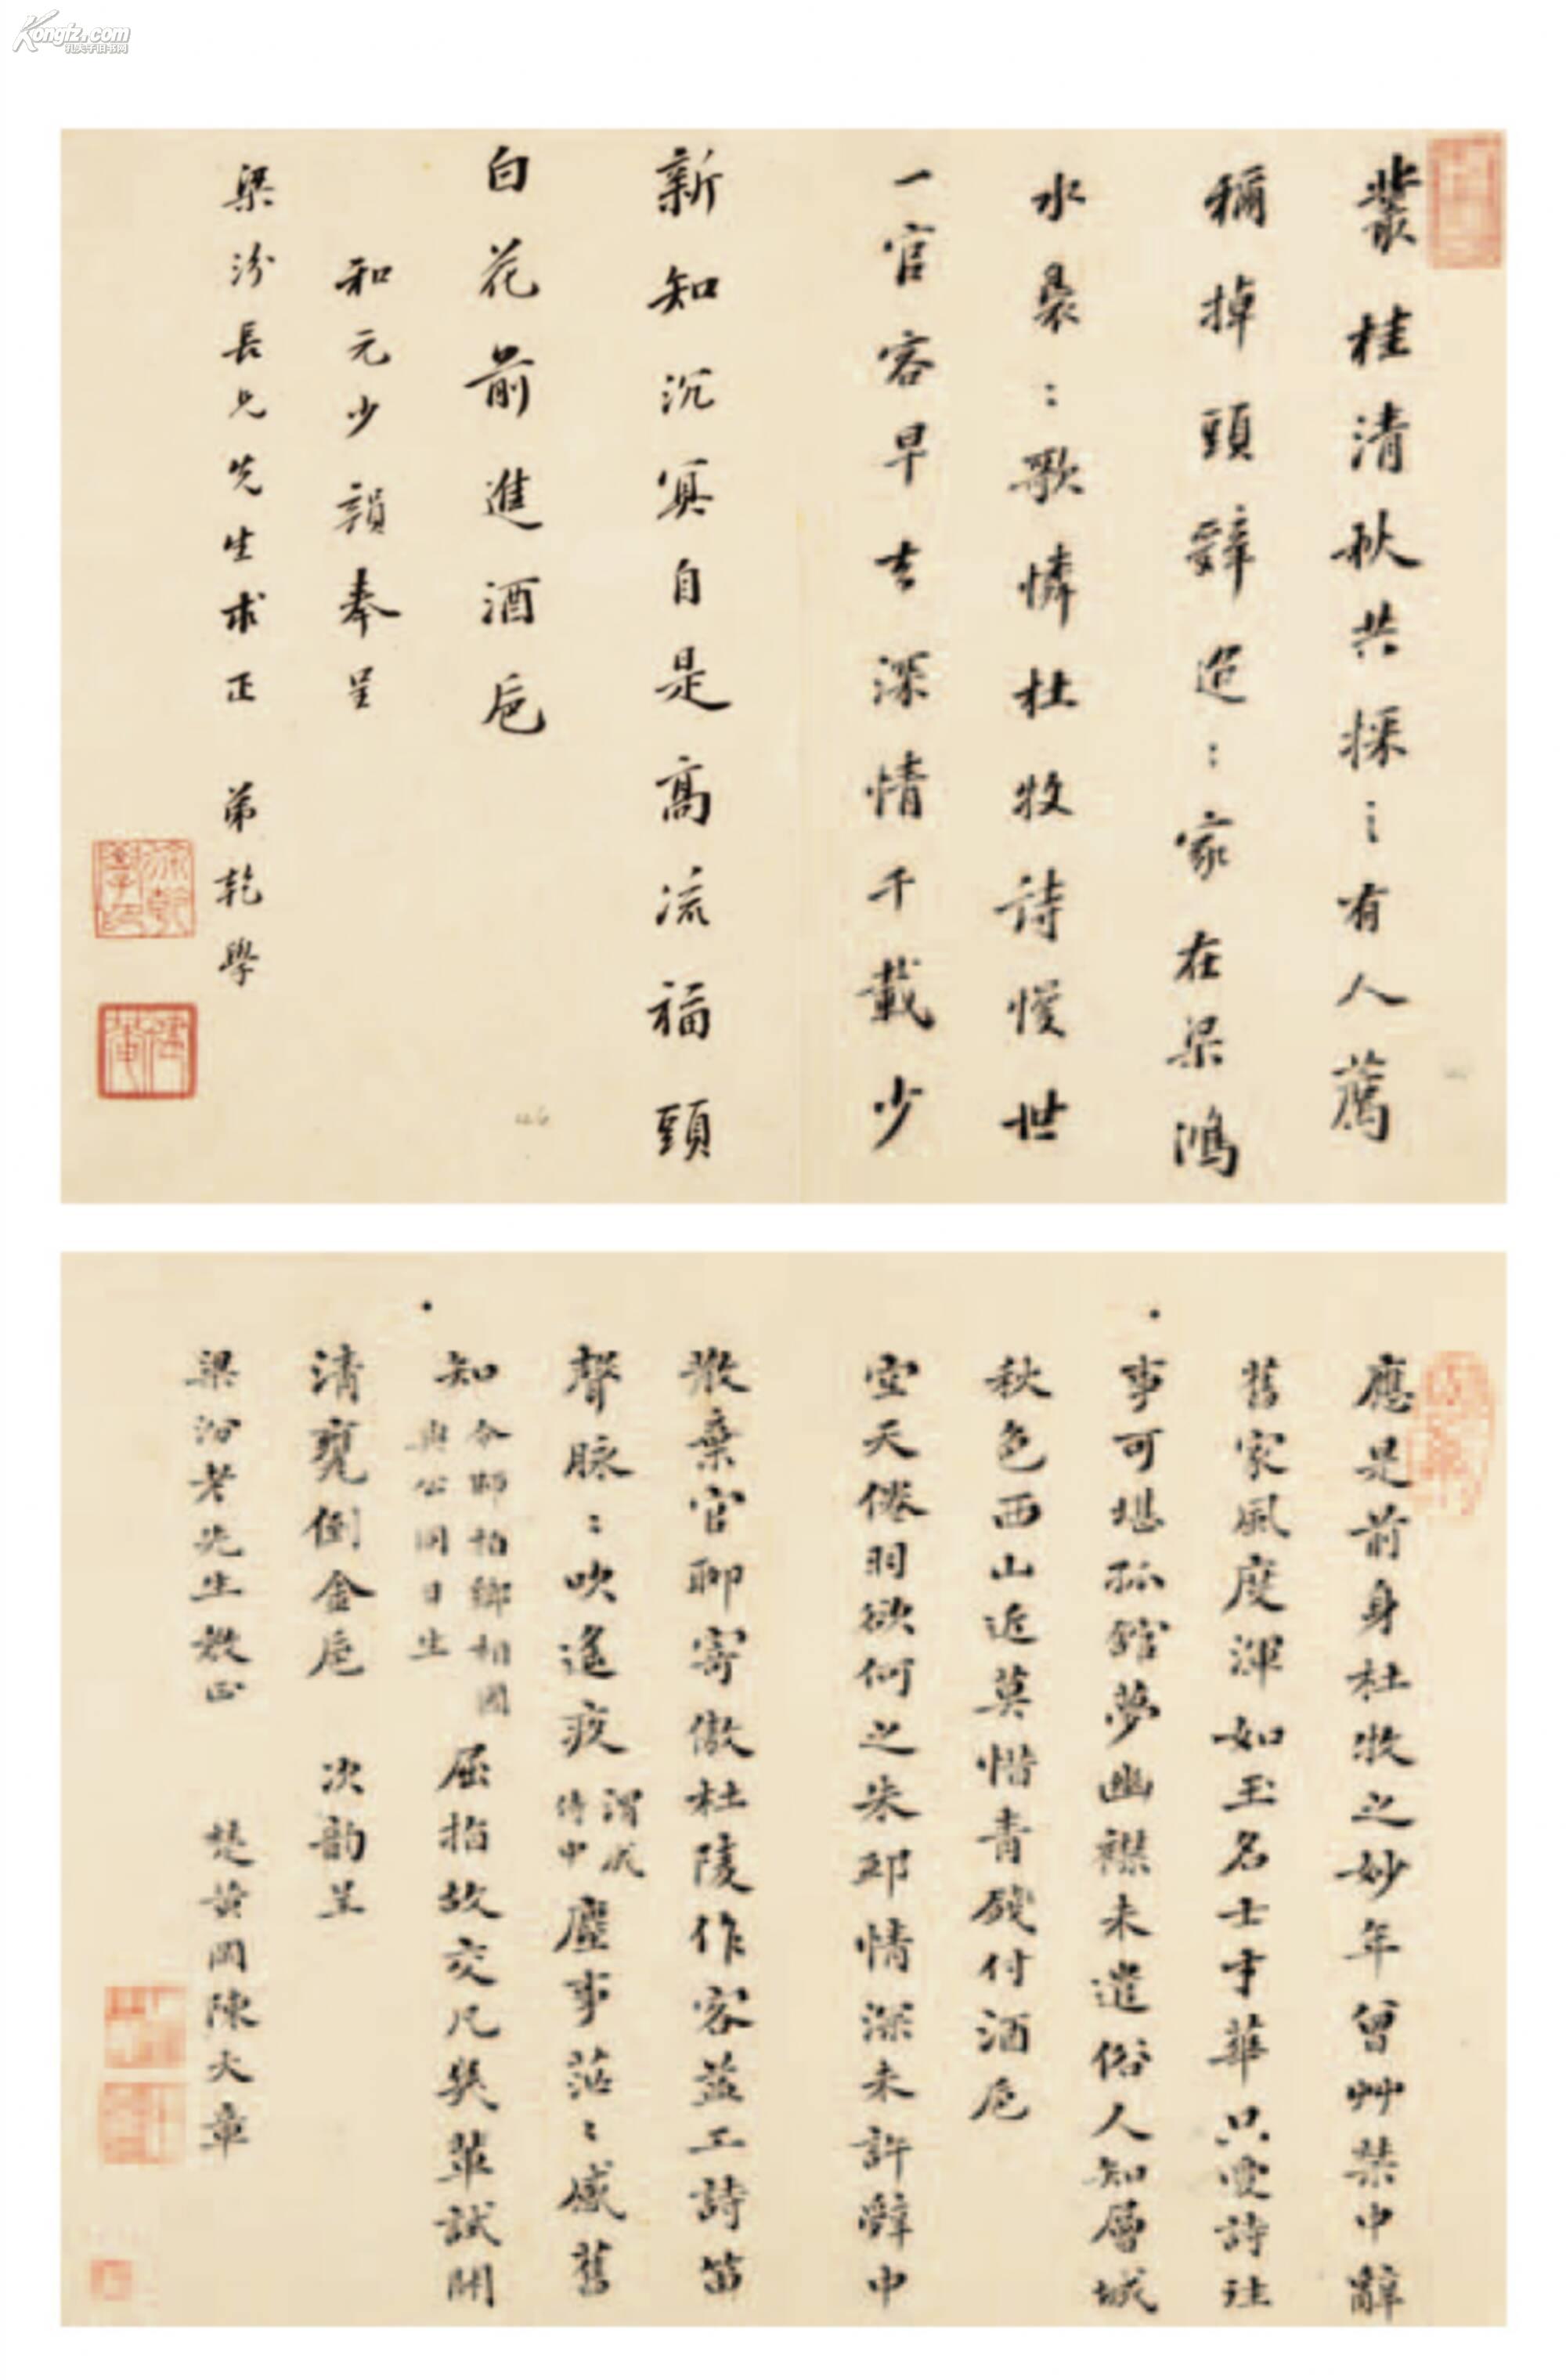 Kongfz.com
孔夫子旧书网
叢桂清秋共採:有人薦
稱掉頭辭迢:家在梁鴻
水裊:歌憐杜牧詩慢世
一官容早去深情千載少
新知沉冥自是高流福頭
白花前進酒卮
和元少韻奉呈
梁汾長兄先生求正 弟乾學
應是前身杜牧之妙年曾艸禁中辭
舊家風度渾如玉名士才華只愛詩往
事可堪孤舘夢幽襟未遣俗人知層城
秋色西山近莫惜青錢付酒卮
空天倦羽欲何之朱邸情深未許辭中
散棄官聊寄傲杜陵作客益工詩笛
聲脉:吹遙夜塵事茫:感舊
知
令師柏鄉相國
與公同日生
屈指故交凡幾輩試開
清甕倒金卮 次韵呈
梁汾老先生教正 楚黃岡陳大章